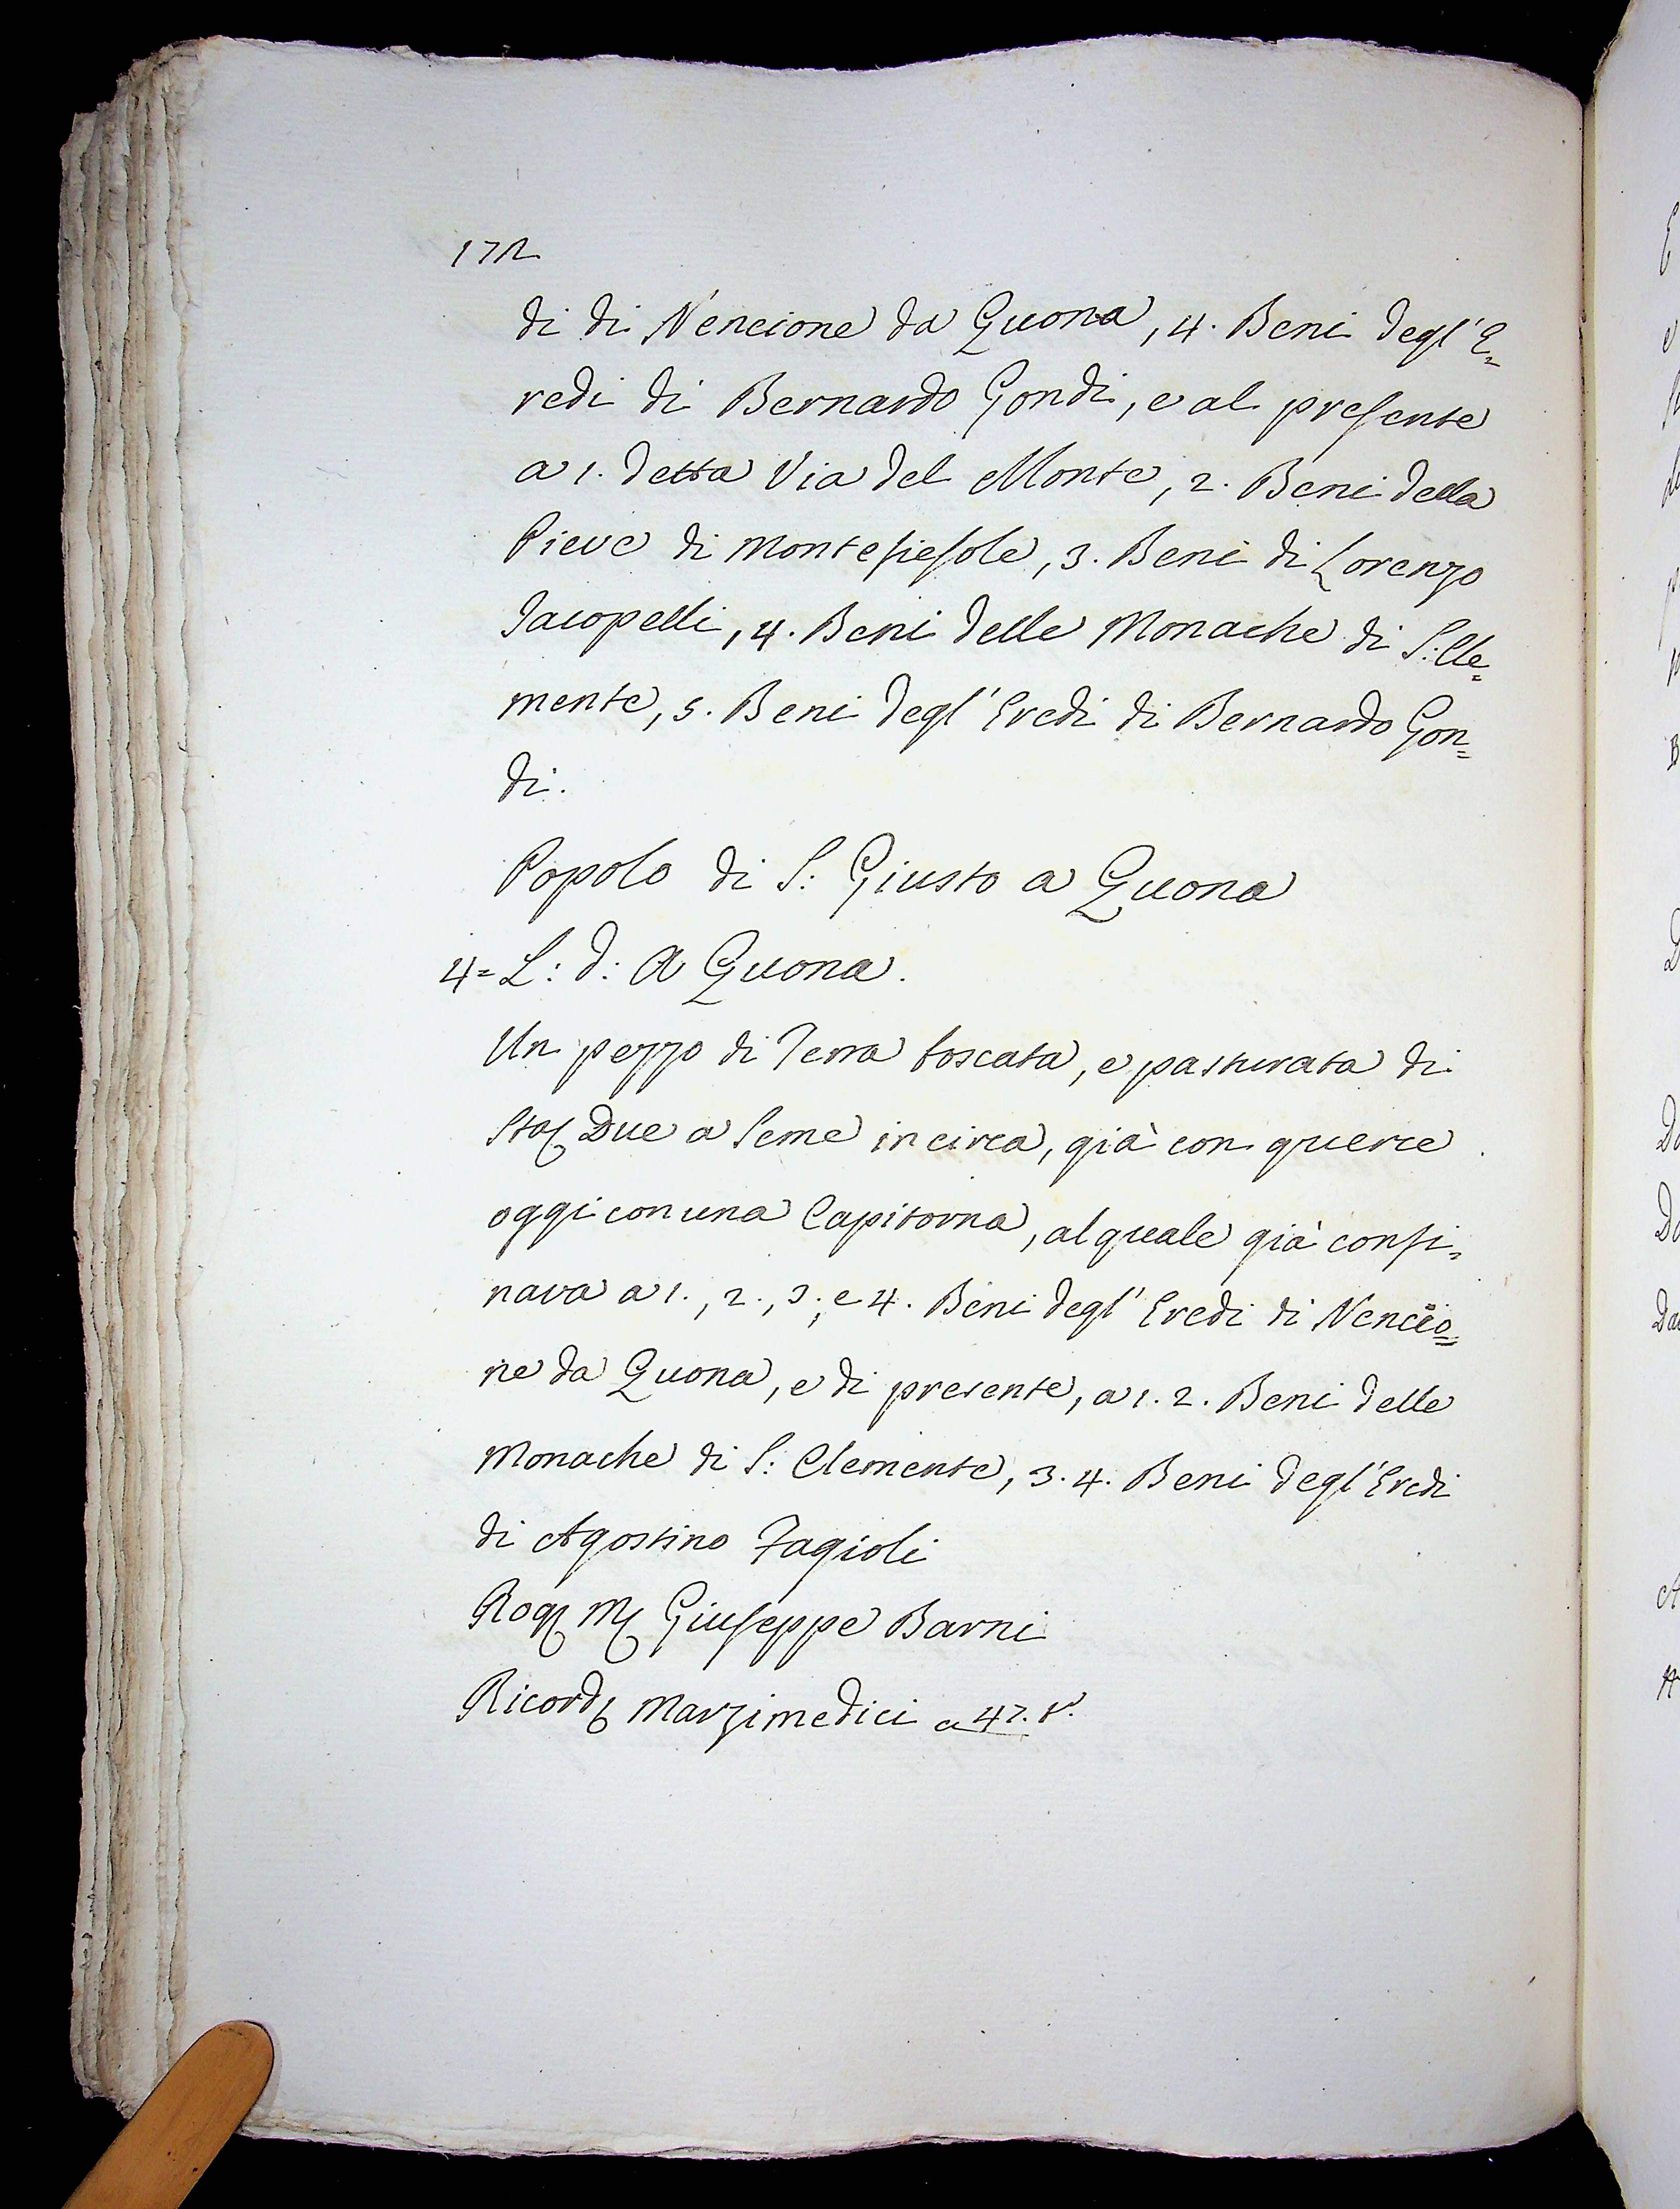 172
di di Nencione da Quona, 4. Beni degl'E=
redi di Bernardo Gondi, e al presente
a 1. detta Via del Monte, 2. Beni della
Pieve di Montefiesole, 3. Beni di Lorenzo
Jacopelli, 4. Beni delle Monache di S: Cle=
mente, 5. Beni degl'Eredi di Bernardo Gon=
di.
Popolo di S: Giusto a Quona
4= L: d: A Quona.
Un pezzo di Terra boscata, e pasturata di
Sta. Due a Seme in circa, già con querce
oggi con una Capitorna, al quale già confi=
nava a 1., 2., 3., e 4. Beni degl'Eredi di Nencio=
ne da Quona, e di presente, a 1. 2. Beni delle
Monache di S: Clemente, 3. 4. Beni degl'Eredi
di Agostino Fagioli
Rog. M. Giuseppe Barni
Ricord. Marzimedici a 47. t.